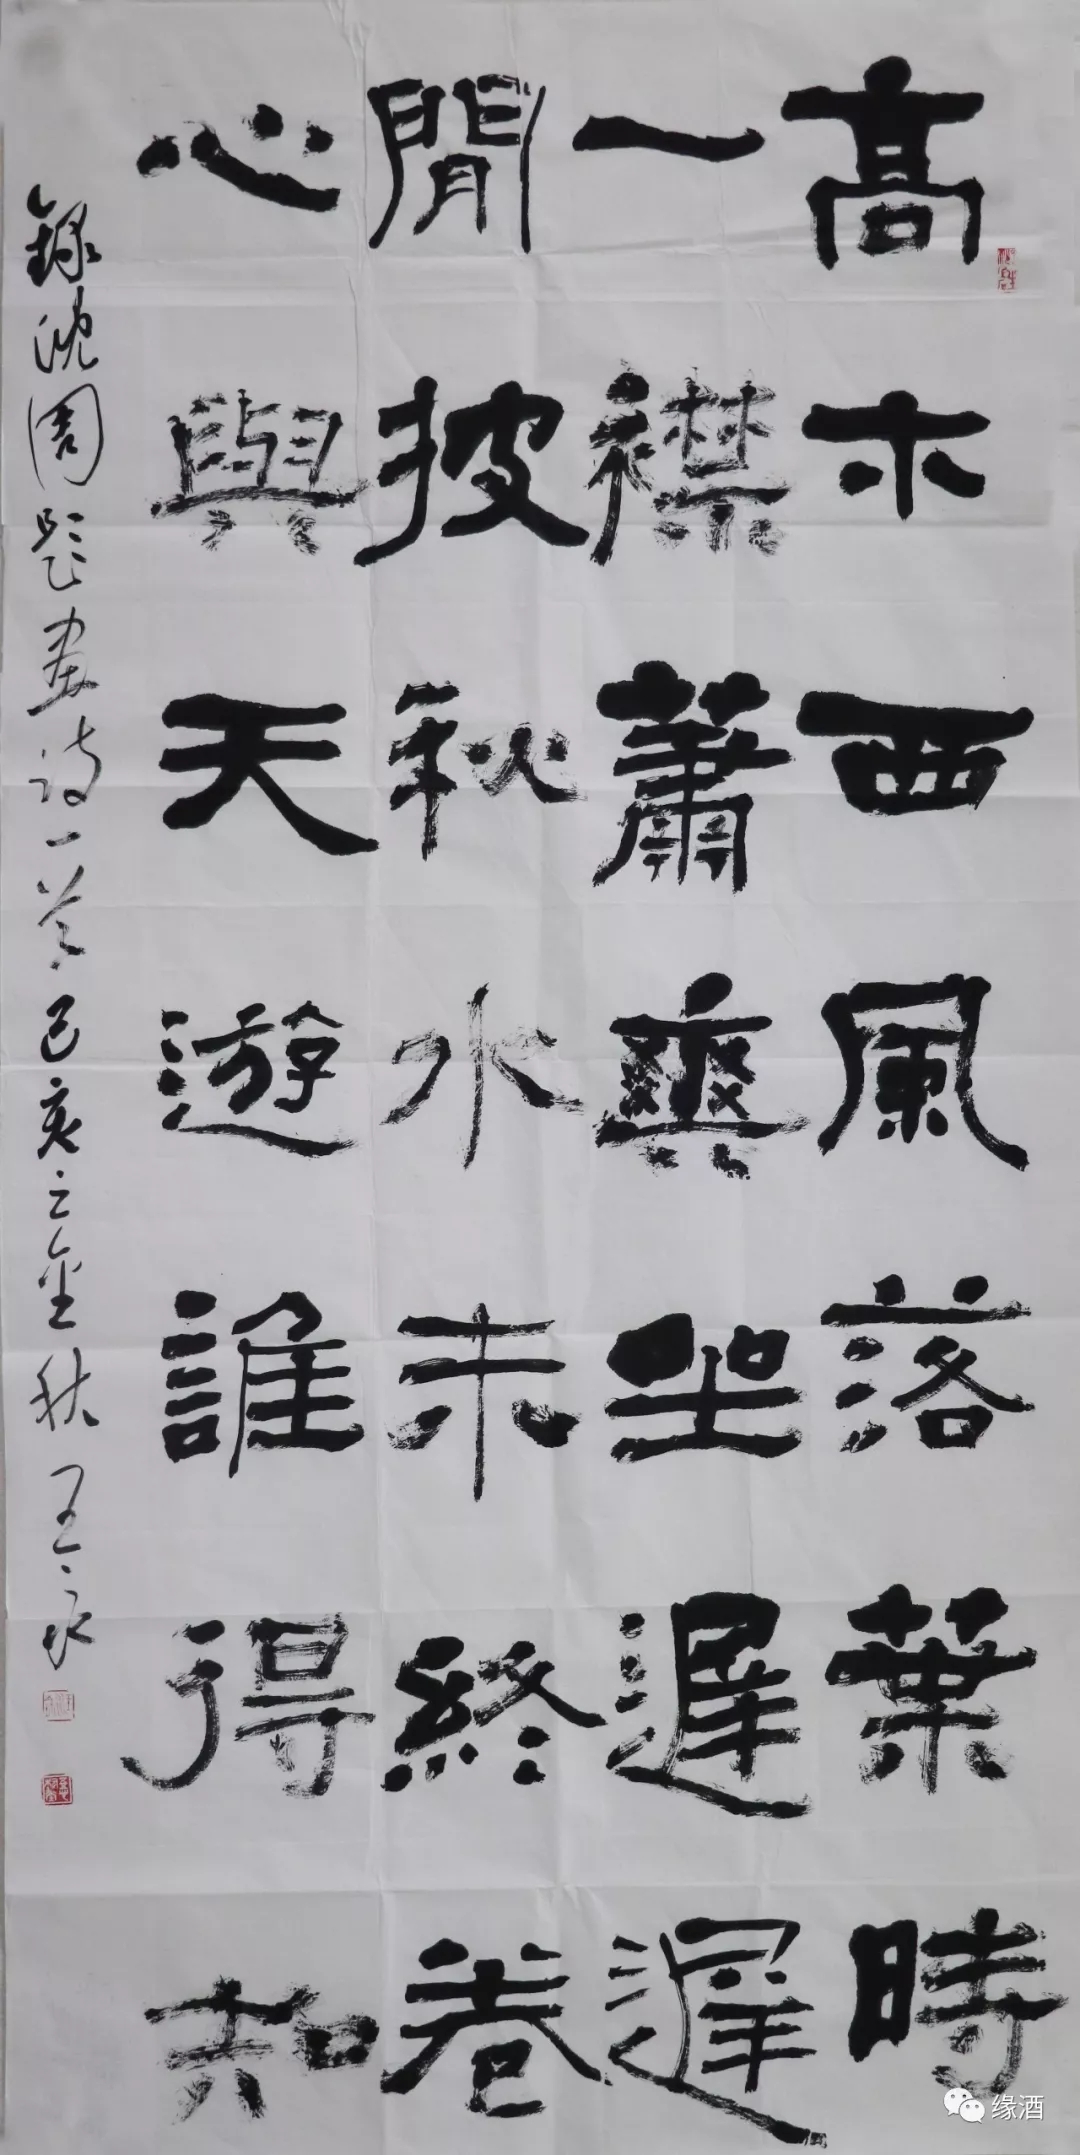 高木西風落葉時
一襟蕭爽坐遲遲
閒披秋水未終卷
心與天遊誰得知
録沈周题画诗一首己亥之金秋王永
缘酒